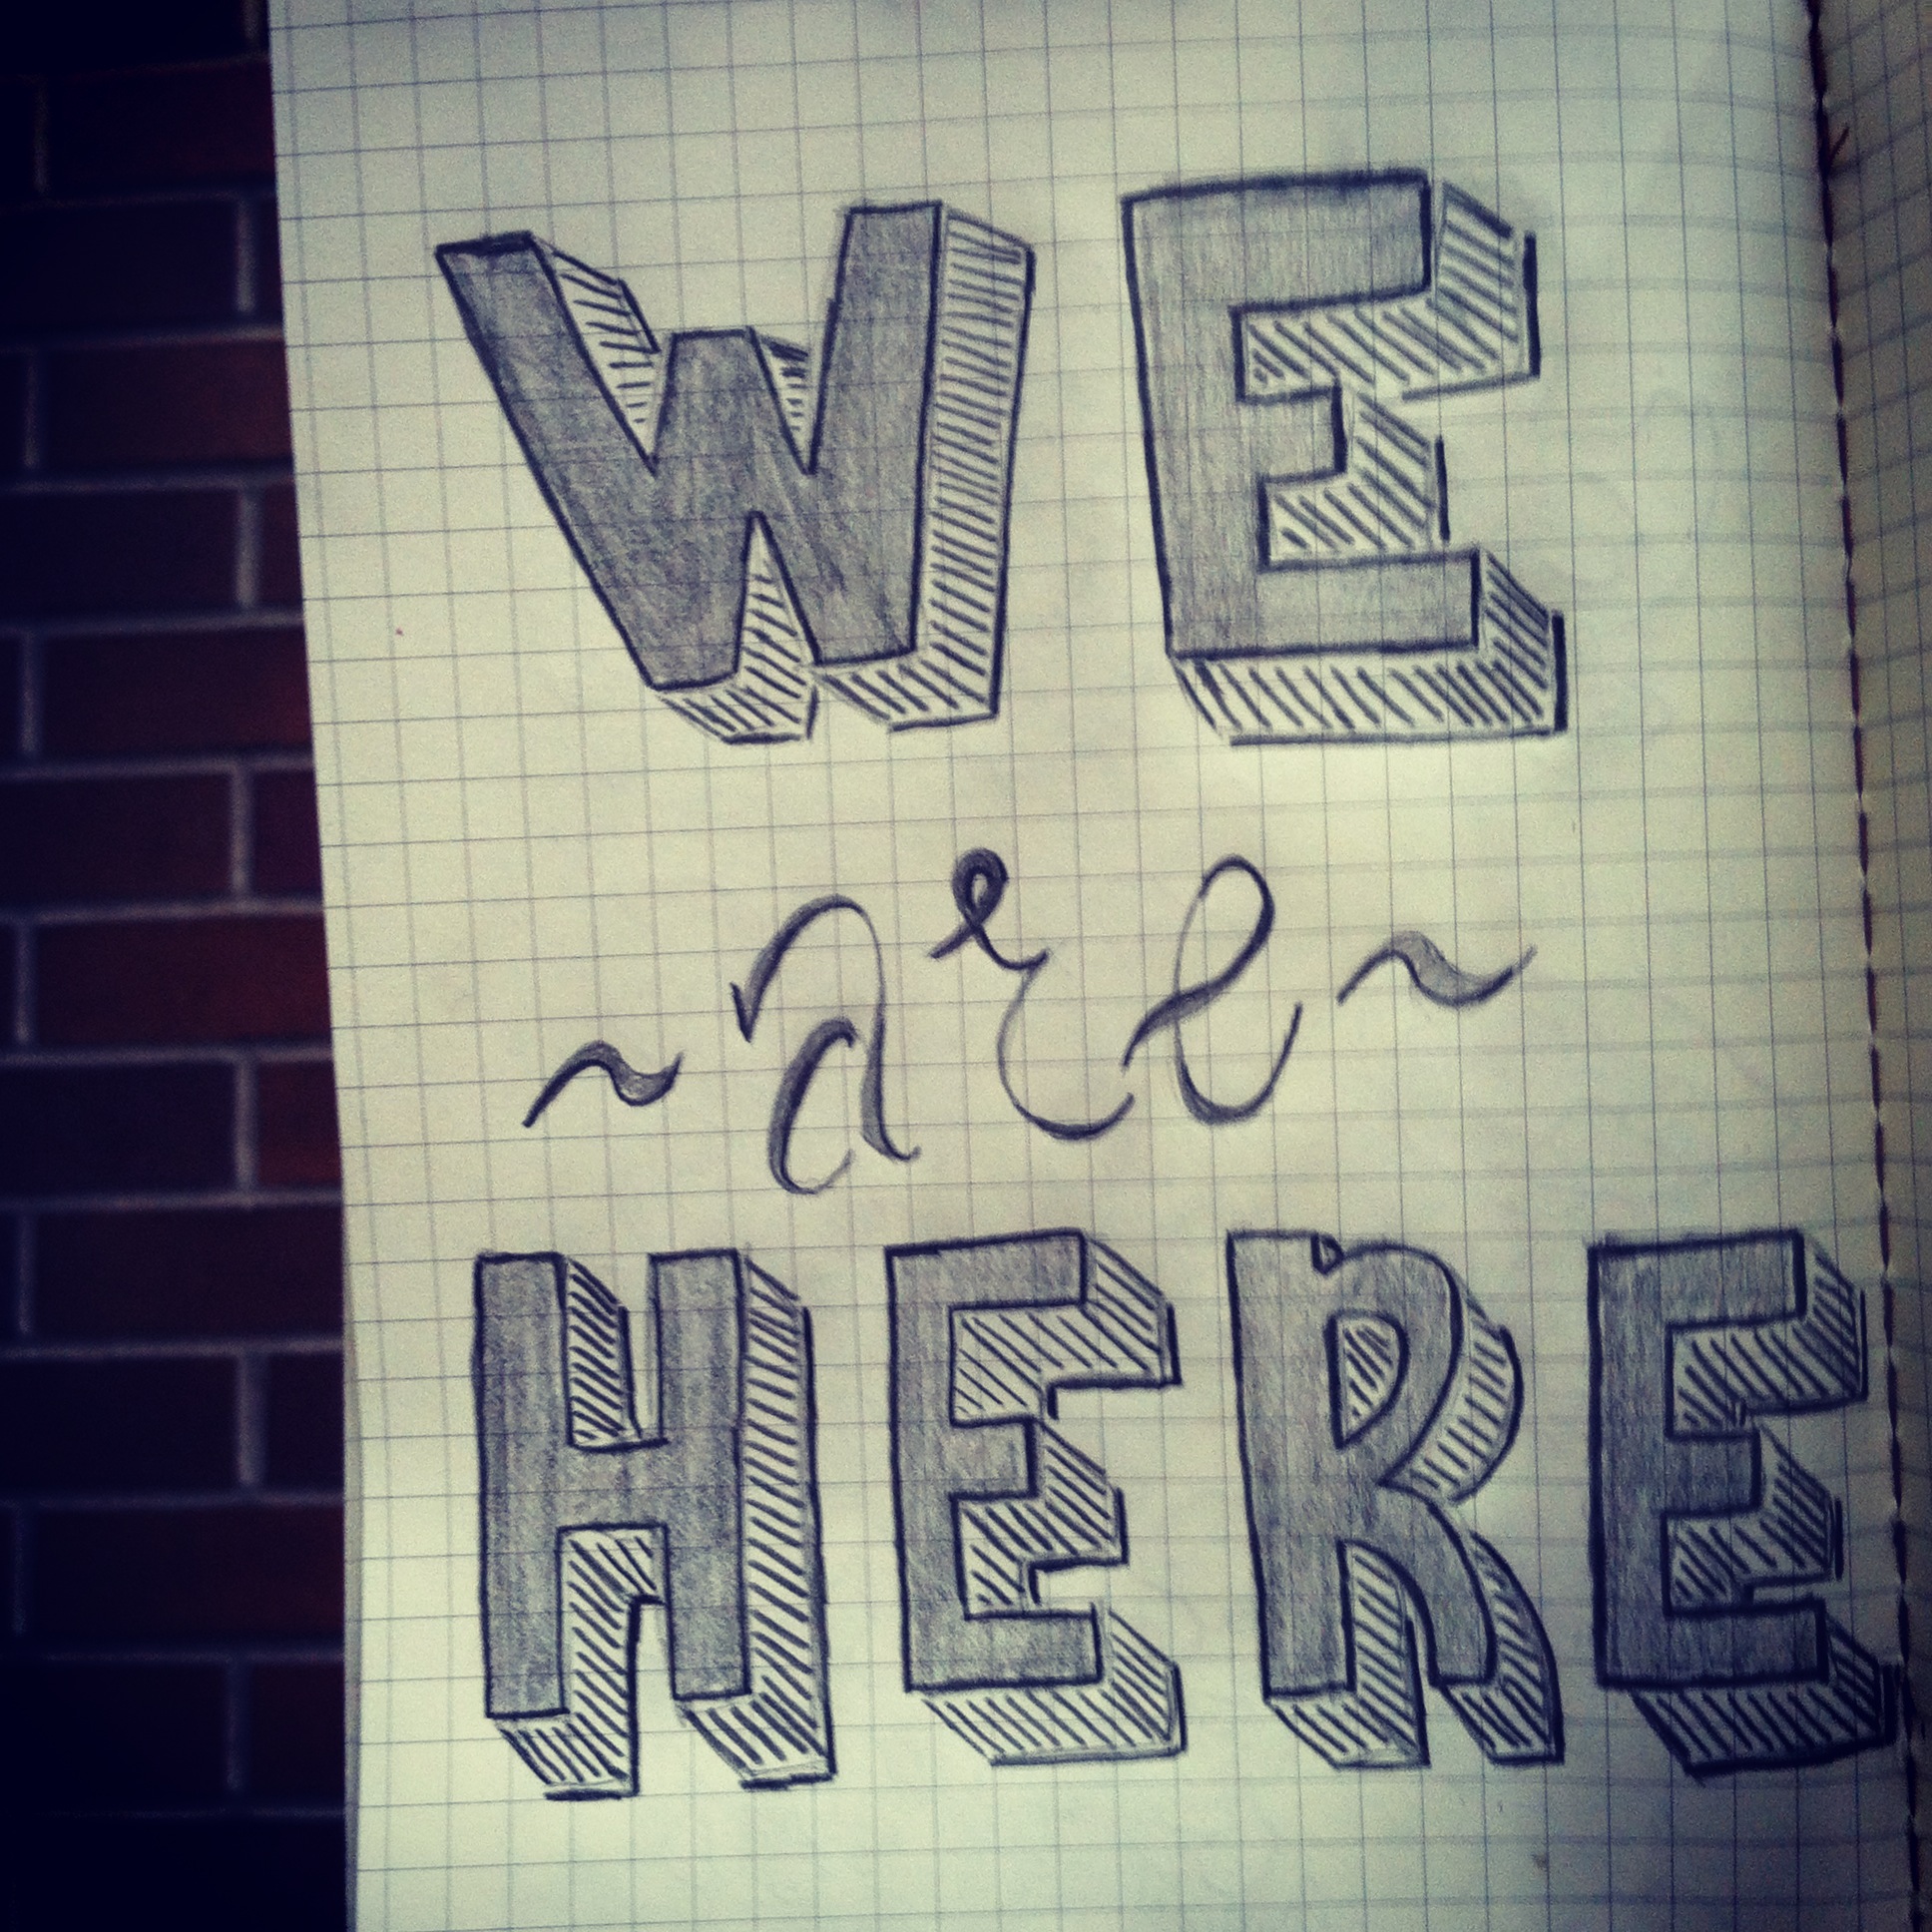 WE
~are~
HERE